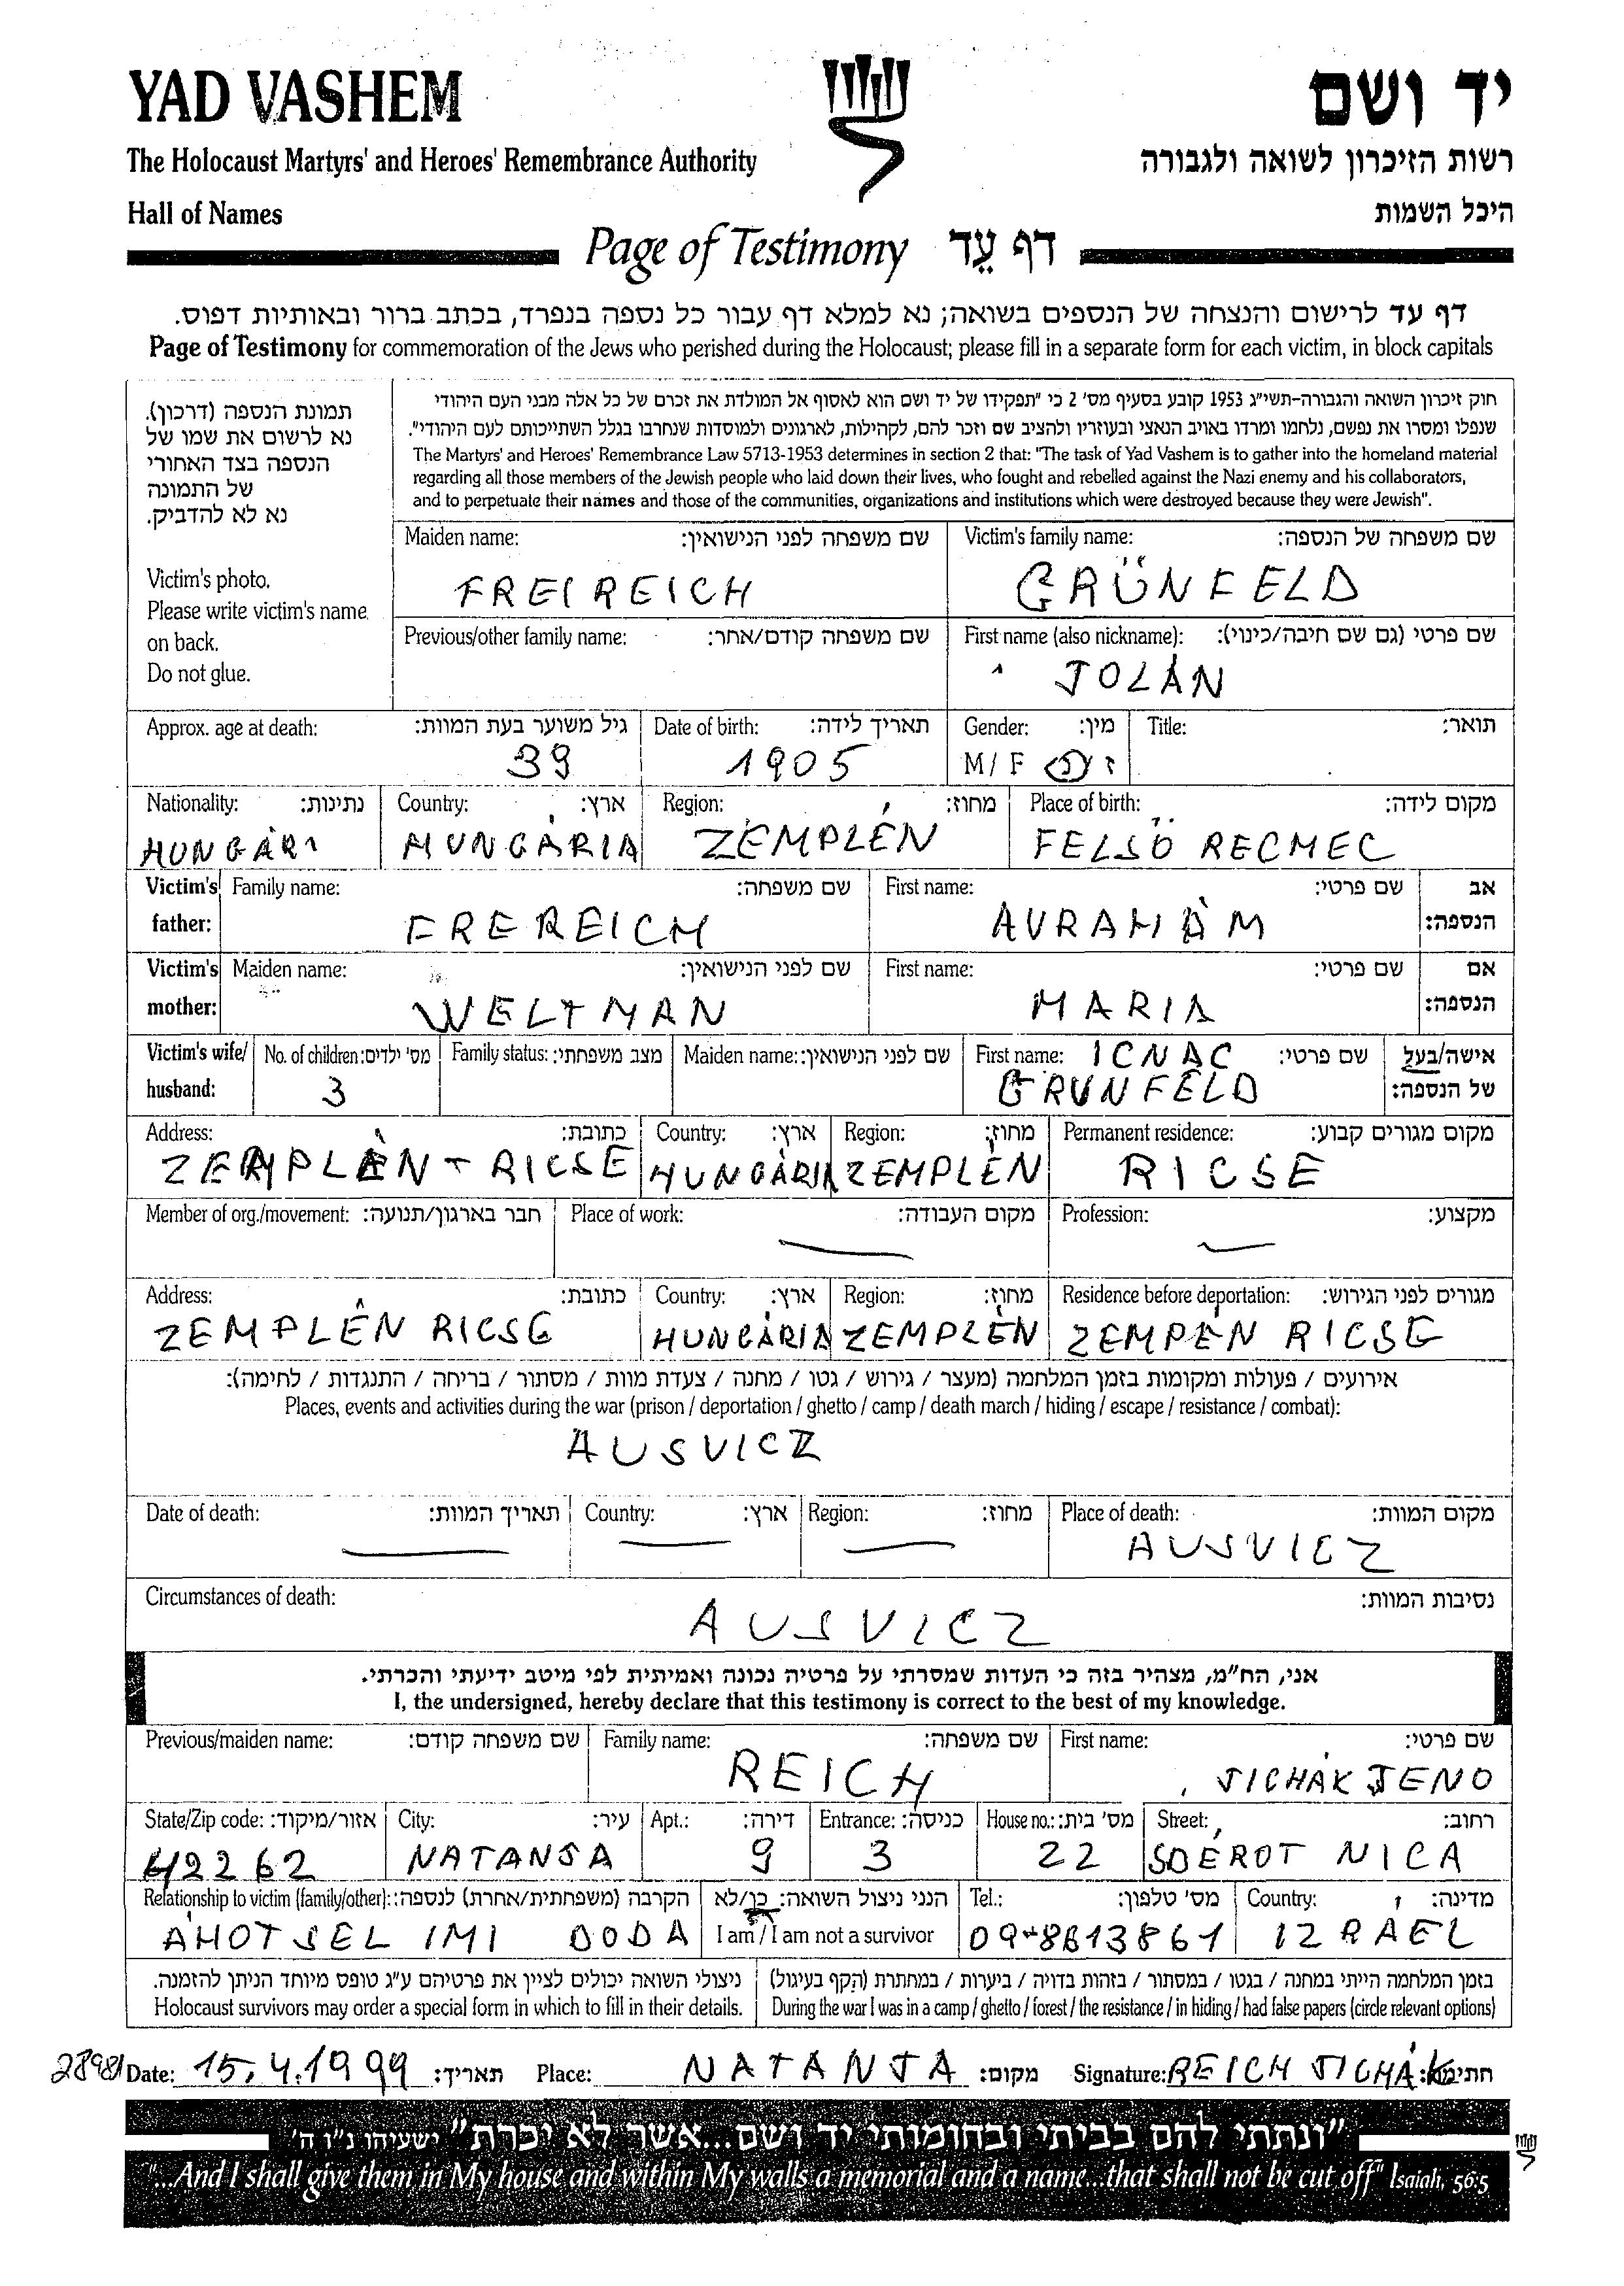 YAD VASHEM
יד ושם
The Holocaust Martyrs' and Heroes' Remembrance Authority
רשות הזיכרון לשואה ולגבורה
Hall of Names
היכל השמות
Page of Testimony דף עֵד
דף עד לרישום והנצחה של הנספים בשואה; נא למלא דף עבור כל נספה בנפרד, בכתב ברור ובאותיות דפוס.
Page of Testimony for commemoration of the Jews who perished during the Holocaust; please fill in a separate form for each victim, in block capitals
תמונת הנספה (דרכון).
נא לרשום את שמו של
הנספה בצד האחורי
של התמונה
נא לא להדביק.
Victim's photo.
Please write victim's name
on back.
Do not glue.
חוק זיכרון השואה והגבורה-תשי"ג 1953 קובע בסעיף מס' 2 כי "תפקידו של יד ושם הוא לאסוף אל המולדת את זכרם של כל אלה מבני העם היהודי
שנפלו ומסרו את נפשם, נלחמו ומרדו באויב הנאצי ובעוזריו ולהציב שם וזכר להם, לקהילות, לארגונים ולמוסדות שנחרבו בגלל השתייכותם לעם היהודי".
The Martyrs' and Heroes' Remembrance Law 5713-1953 determines in section 2 that: "The task of Yad Vashem is to gather into the homeland material
regarding all those members of the Jewish people who laid down their lives, who fought and rebelled against the Nazi enemy and his collaborators,
and to perpetuate their names and those of the communities, organizations and institutions which were destroyed because they were Jewish".
Maiden name: שם משפחה לפני הנישואין: Victim's family name: שם משפחה של הנספה:
FREIREICH GRÜNFELD
Previous/other family name: שם משפחה קודם/אחר: First name (also nickname): שם פרטי (גם שם חיבה/כינוי):
JOLÁN
Approx. age at death: גיל משוער בעת המוות: Date of birth: תאריך לידה: Gender: מין: Title: תואר:
39 1905 M / F ז / נ
Nationality: נתינות: Country: ארץ: Region: מחוז: Place of birth: מקום לידה:
HUNGÁRI HUNGÁRIA ZEMPLÉN FELSÖ RECMEC
Victim's father: Family name: שם משפחה: First name: שם פרטי: אב הנספה:
FREREICH AVRAHÁM
Victim's mother: Maiden name: שם לפני הנישואין: First name: שם פרטי: אם הנספה:
WELTMAN MARIA
Victim's wife/ husband: No. of children: מס' ילדים: Family status: מצב משפחתי: Maiden name: שם לפני הנישואין: First name: שם פרטי: אישה/בעל של הנספה:
3 ICNAC
GRUNFELD
Address: כתובת: Country: ארץ: Region: מחוז: Permanent residence: מקום מגורים קבוע:
ZEMPLÉN - RICSE HUNGÁRIA ZEMPLÉN RICSE
Member of org./movement: חבר בארגון/תנועה: Place of work: מקום העבודה: Profession: מקצוע:
Address: כתובת: Country: ארץ: Region: מחוז: Residence before deportation: מגורים לפני הגירוש:
ZEMPLÉN RICSE HUNGÁRIA ZEMPLÉN ZEMPÉN RICSE
אירועים / פעולות ומקומות בזמן המלחמה (מעצר / גירוש / גטו / מחנה / צעדת מוות / מסתור / בריחה / התנגדות / לחימה):
Places, events and activities during the war (prison / deportation / ghetto / camp / death march / hiding / escape / resistance / combat):
AUSVICZ
Date of death: תאריך המוות: Country: ארץ: Region: מחוז: Place of death: מקום המוות:
AUSVICZ
Circumstances of death: נסיבות המוות:
AUSVICZ
אני, הח"מ, מצהיר בזה כי העדות שמסרתי על פרטיה נכונה ואמיתית לפי מיטב ידיעתי והכרתי.
I, the undersigned, hereby declare that this testimony is correct to the best of my knowledge.
Previous/maiden name: שם משפחה קודם: Family name: שם משפחה: First name: שם פרטי:
REICH JICHÁK JENO
State/Zip code: אזור/מיקוד: City: עיר: Apt.: דירה: Entrance: כניסה: House no.: מס' בית: Street: רחוב:
42262 NATANJA 9 3 22 SDEROT NICA
Relationship to victim (family/other): הקרבה (משפחתית/אחרת) לנספה: הנני ניצול השואה: כן/לא Tel.: מס' טלפון: Country: מדינה:
ÁHOT SEL IMI DODA I am / I am not a survivor 09-8613861 IZRAEL
ניצולי השואה יכולים לציין את פרטיהם ע"ג טופס מיוחד הניתן להזמנה.
Holocaust survivors may order a special form in which to fill in their details.
בזמן המלחמה הייתי במחנה / בגטו / במסתור / בזהות בדויה / ביערות / במחתרת (הקף בעיגול)
During the war I was in a camp / ghetto / forest / the resistance / in hiding / had false papers (circle relevant options)
Date: 15.4.1999 תאריך: Place: NATANJA מקום: Signature: REICH JICHÁK חתימה:
"ונתתי להם בביתי ובחומותי יד ושם...אשר לא יכרת" ישעיהו נ"ו ה'
"...And I shall give them in My house and within My walls a memorial and a name...that shall not be cut off" Isaiah, 56:5